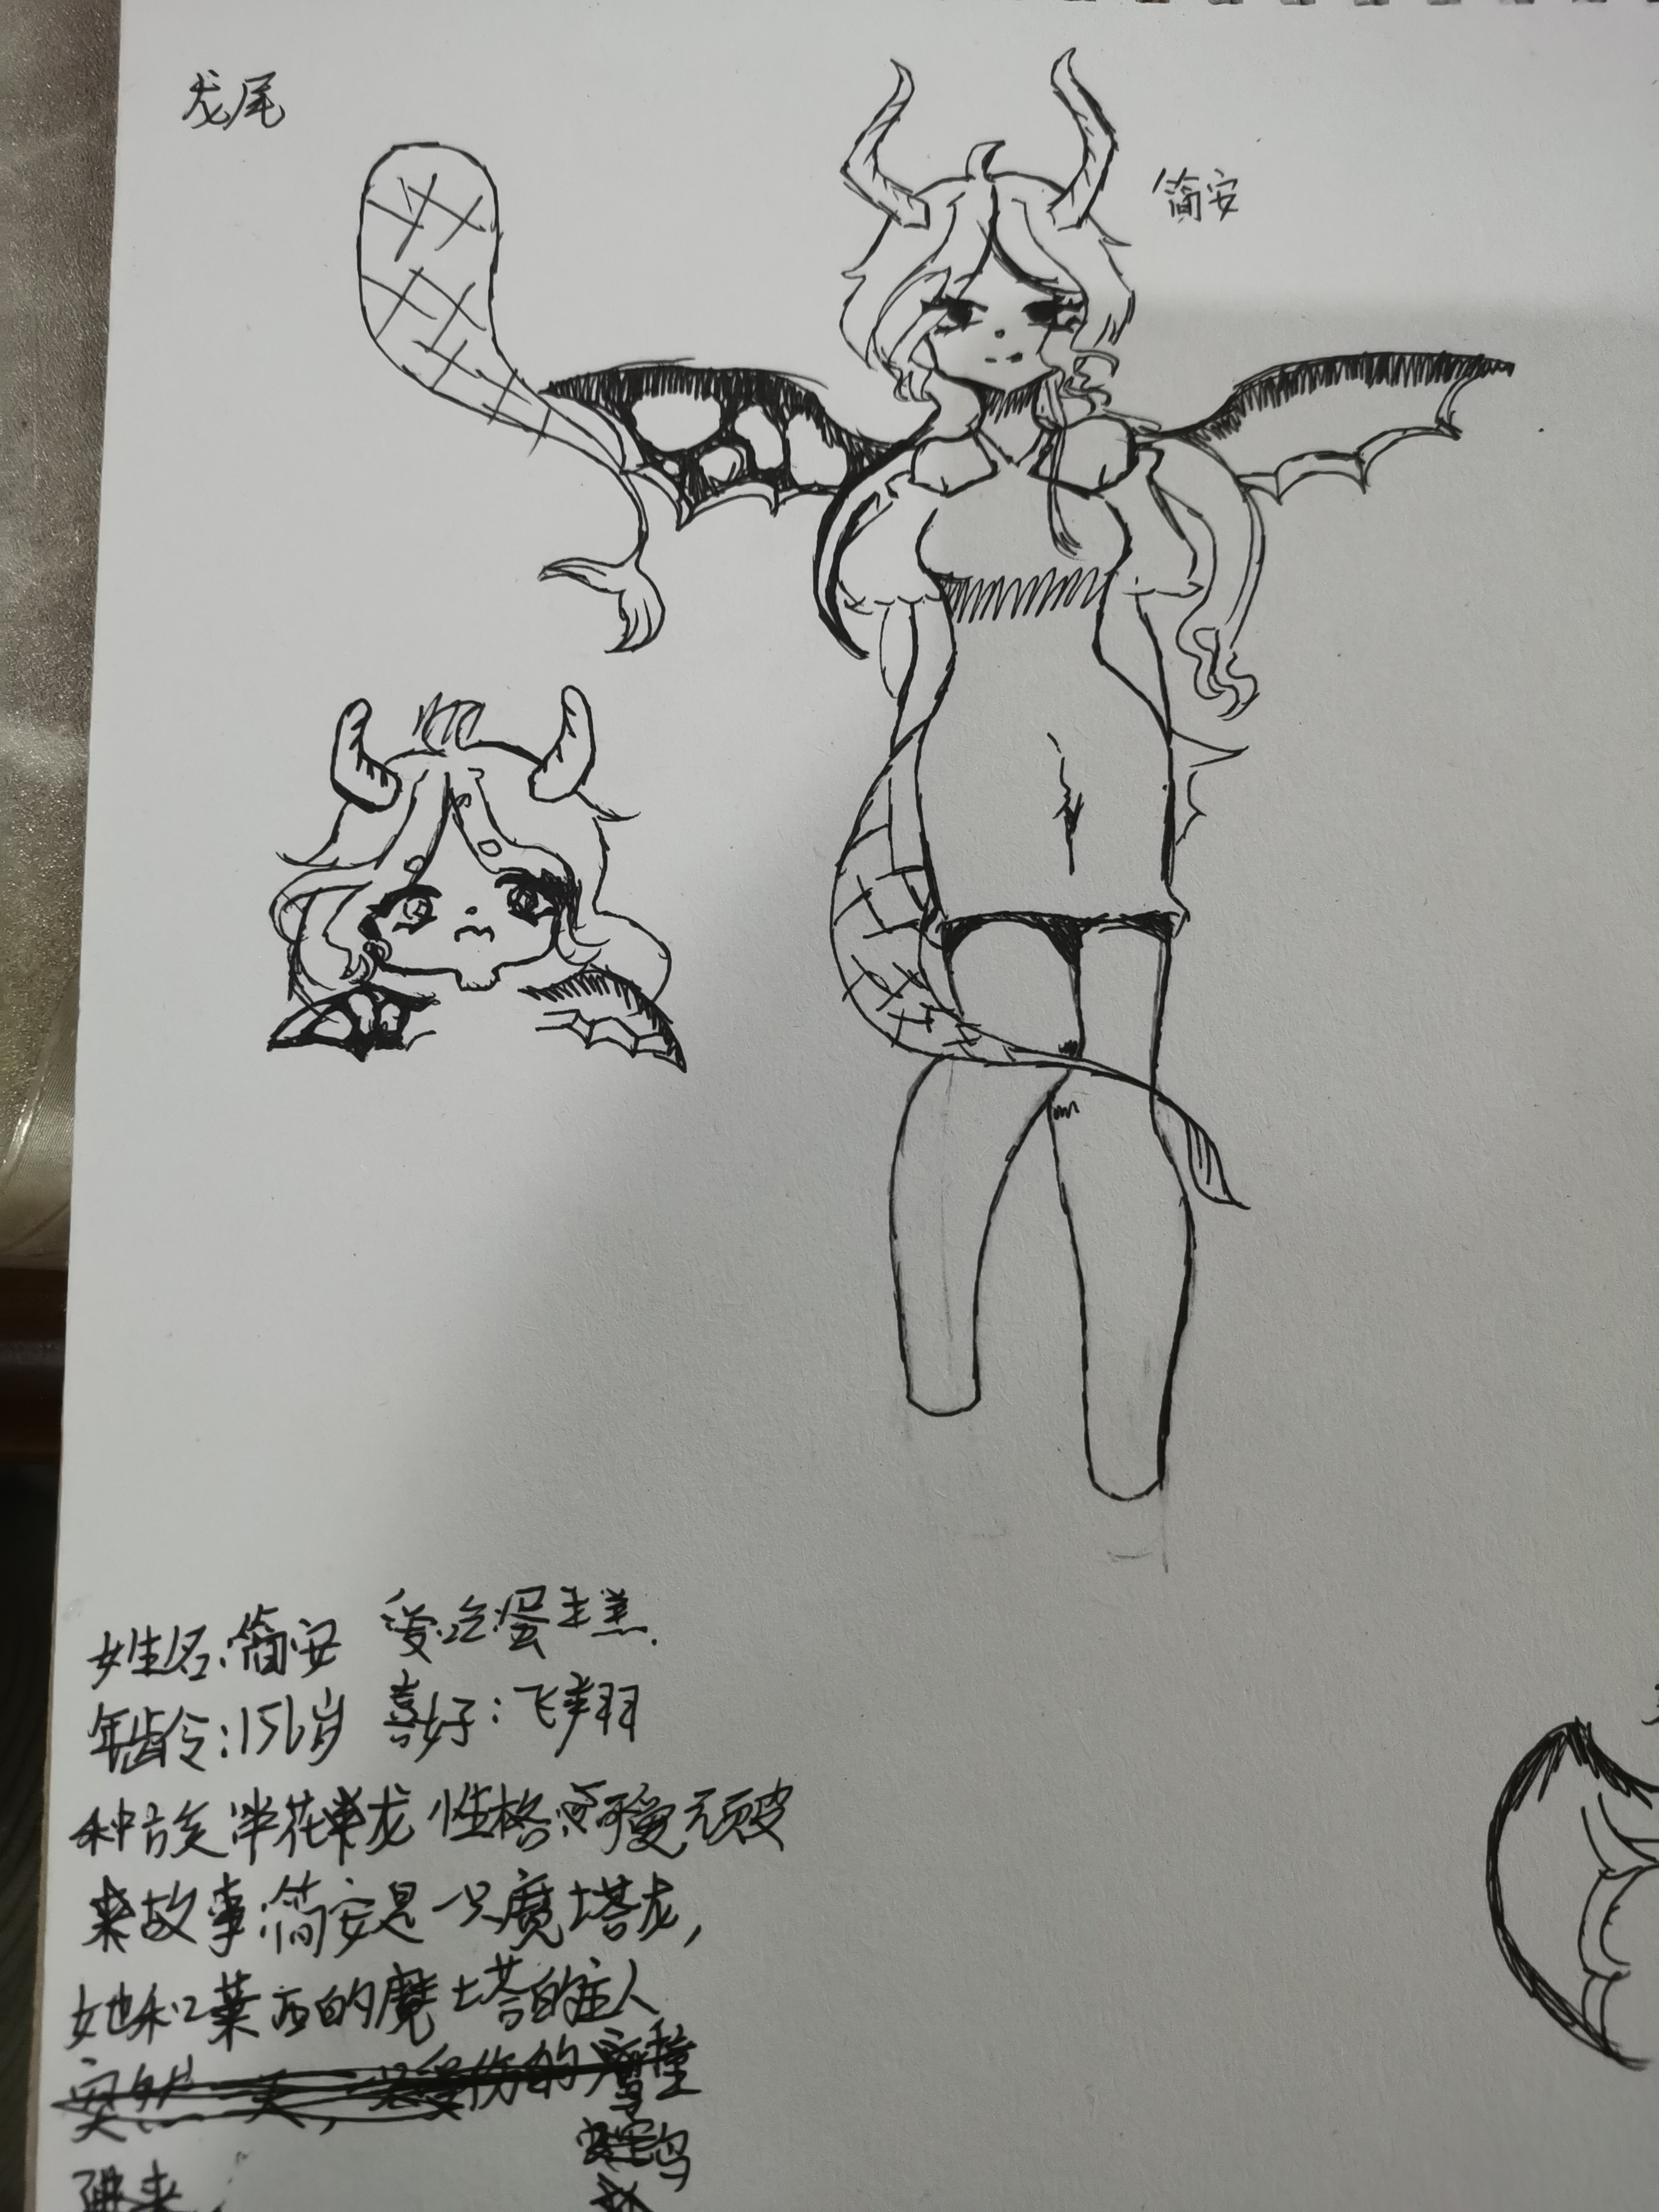 龙尾
简安
姓名:简安 爱吃蛋羔.
年龄:156岁 喜好:飞翔
种族半花龙 性格:可爱,顽皮
故事:简安是一只魔塔龙,
她和莱西的魔塔的主人
突然一天,受伤的